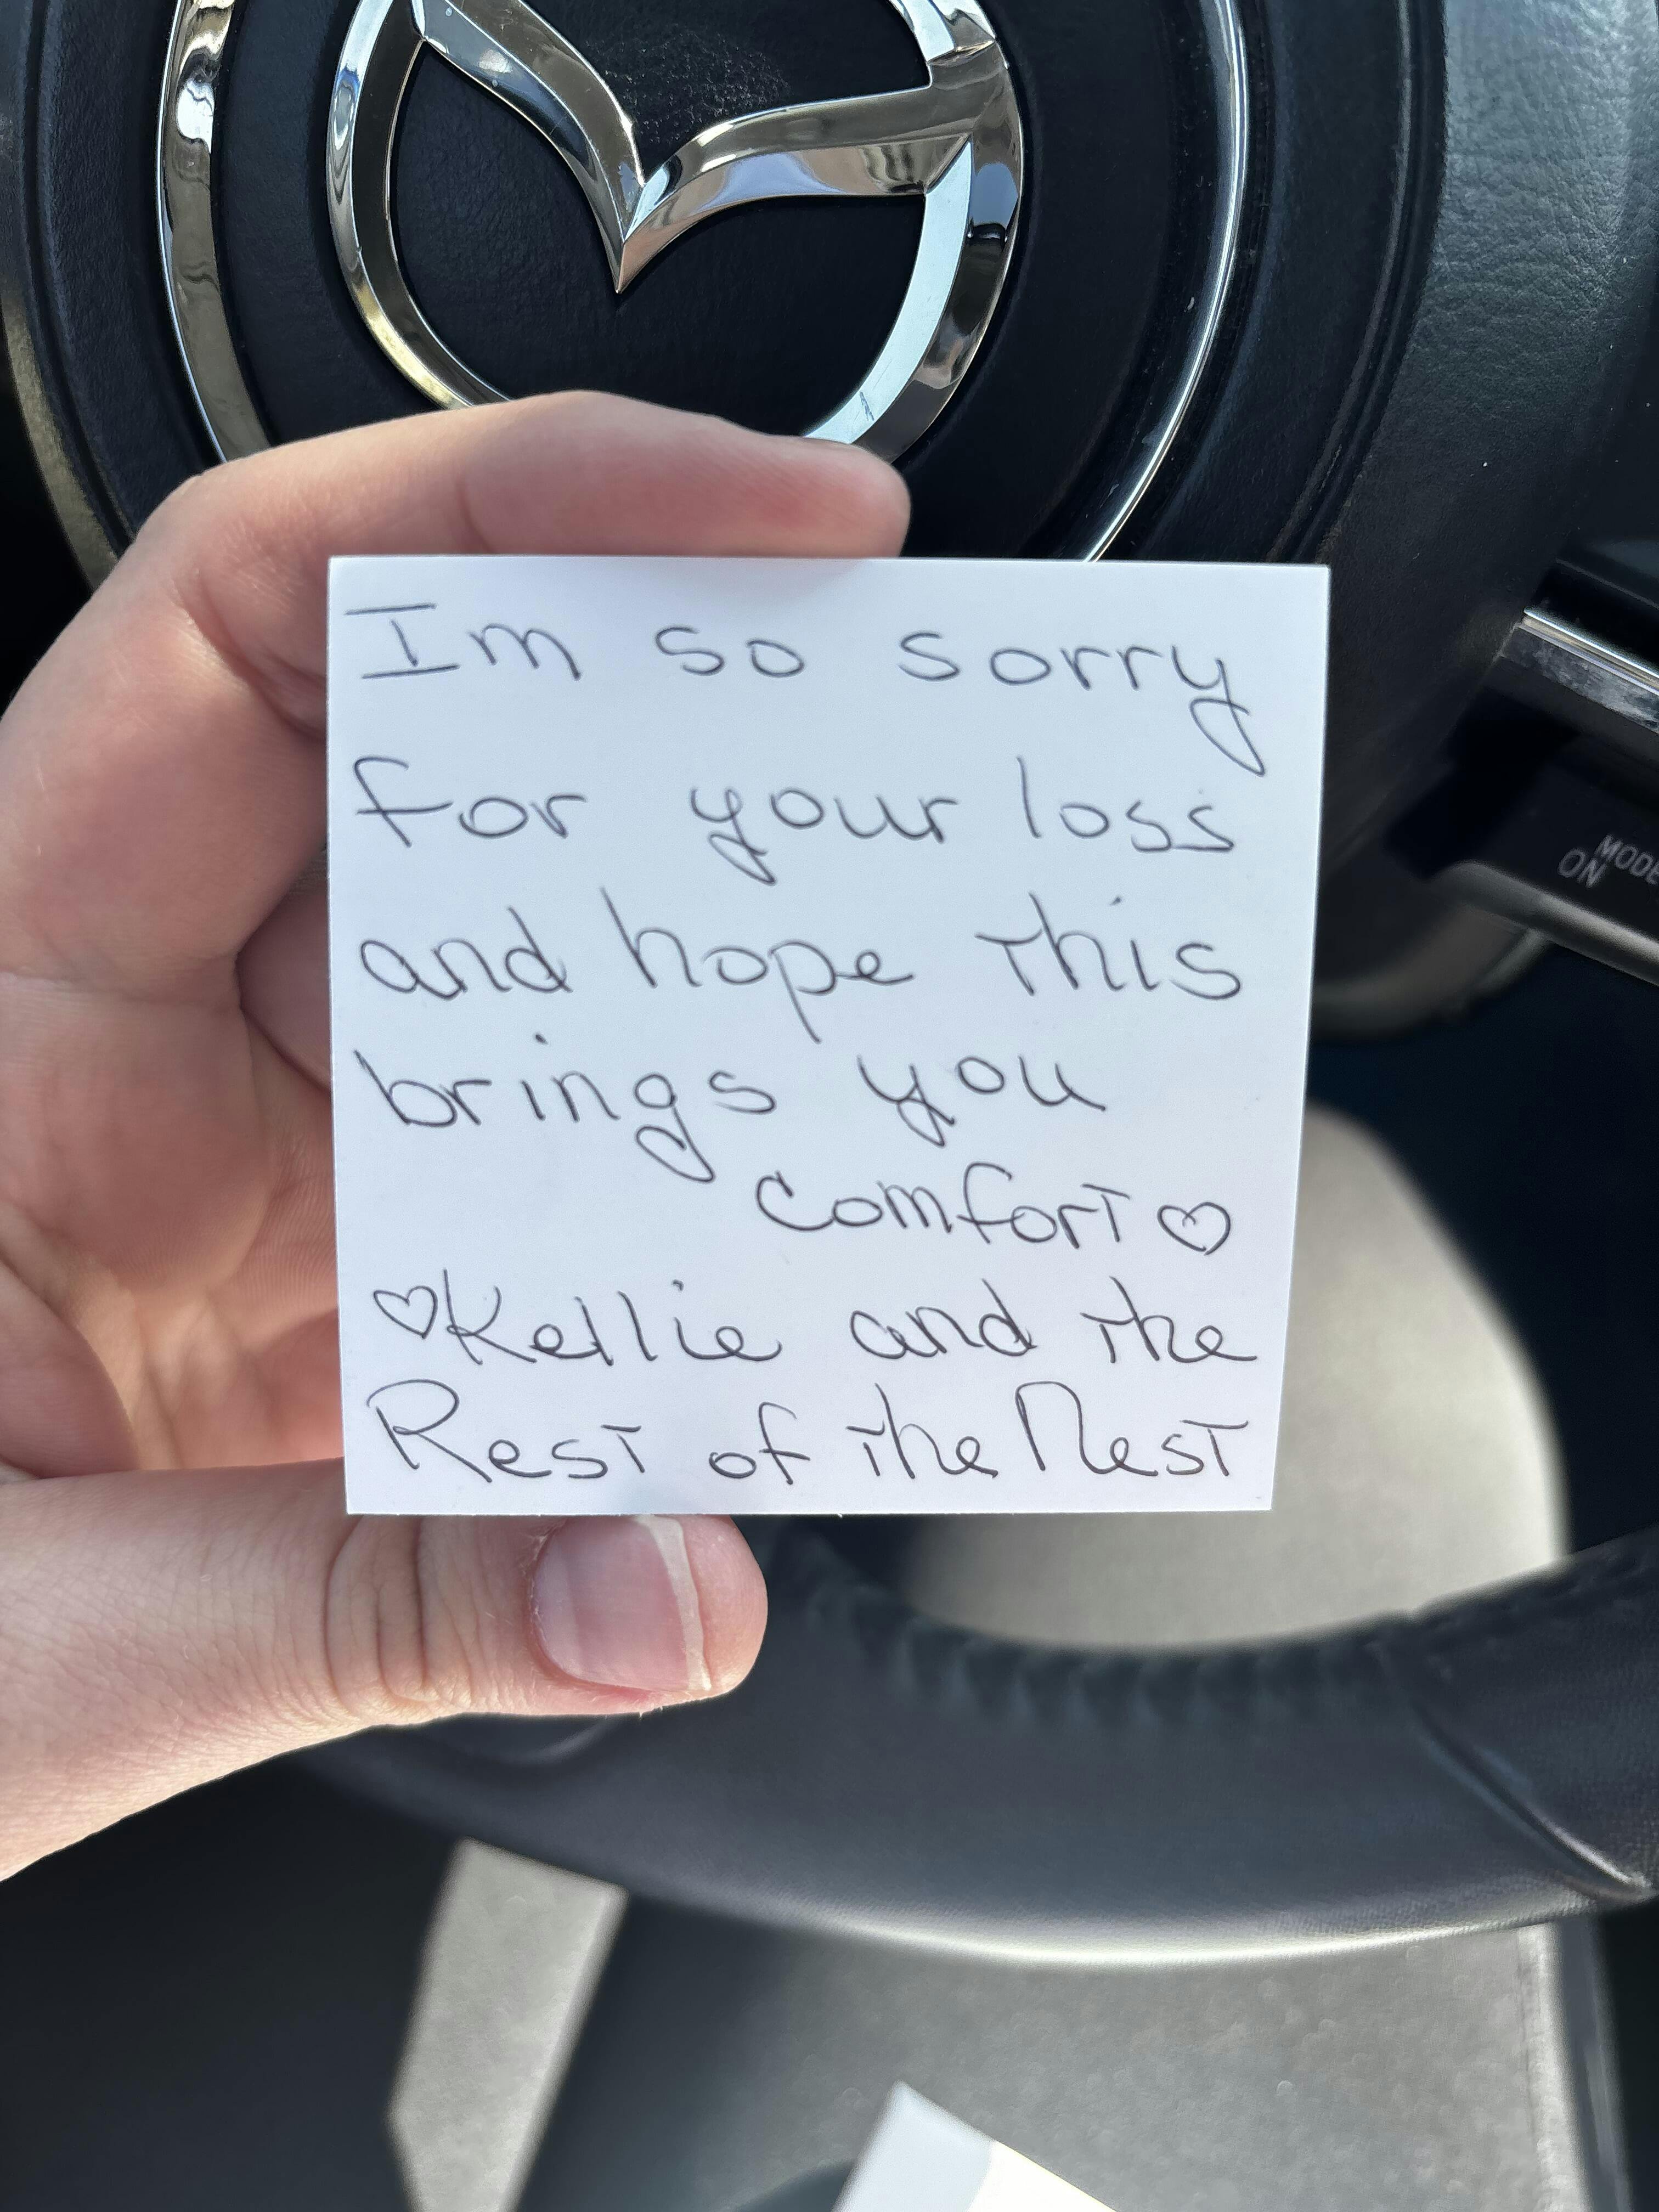 Im so sorry
for your loss
and hope this
brings you
comfort ♡
♡Kellie and the
Rest of the Nest
MODE
ON